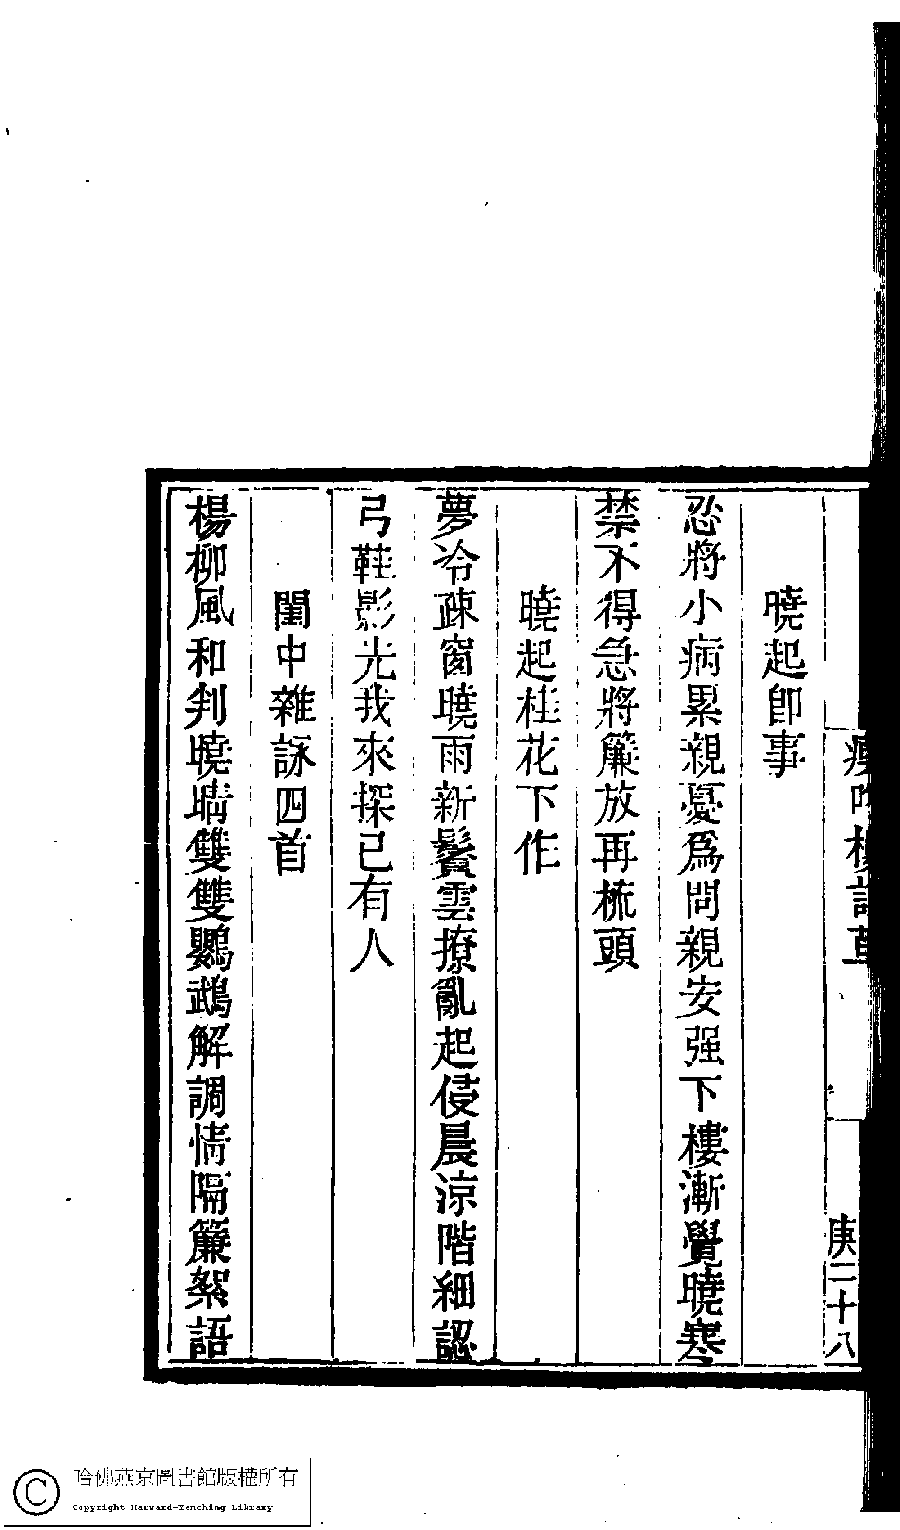 瘦吟樓詩草
庚二十八
曉起卽事
忍將小病累親憂爲問親安强下樓漸覺曉寒
禁不得急將簾放再梳頭
曉起桂花下作
夢冷疎窗曉雨新鬢雲撩亂起侵晨涼階細認
弓鞋影光我來探已有人
閨中雜詠四首
楊柳風和判曉晴雙雙鸚鵡解調情隔簾絮語
哈佛燕京圖書館版權所有
Copyright Harvard-Yenching Library